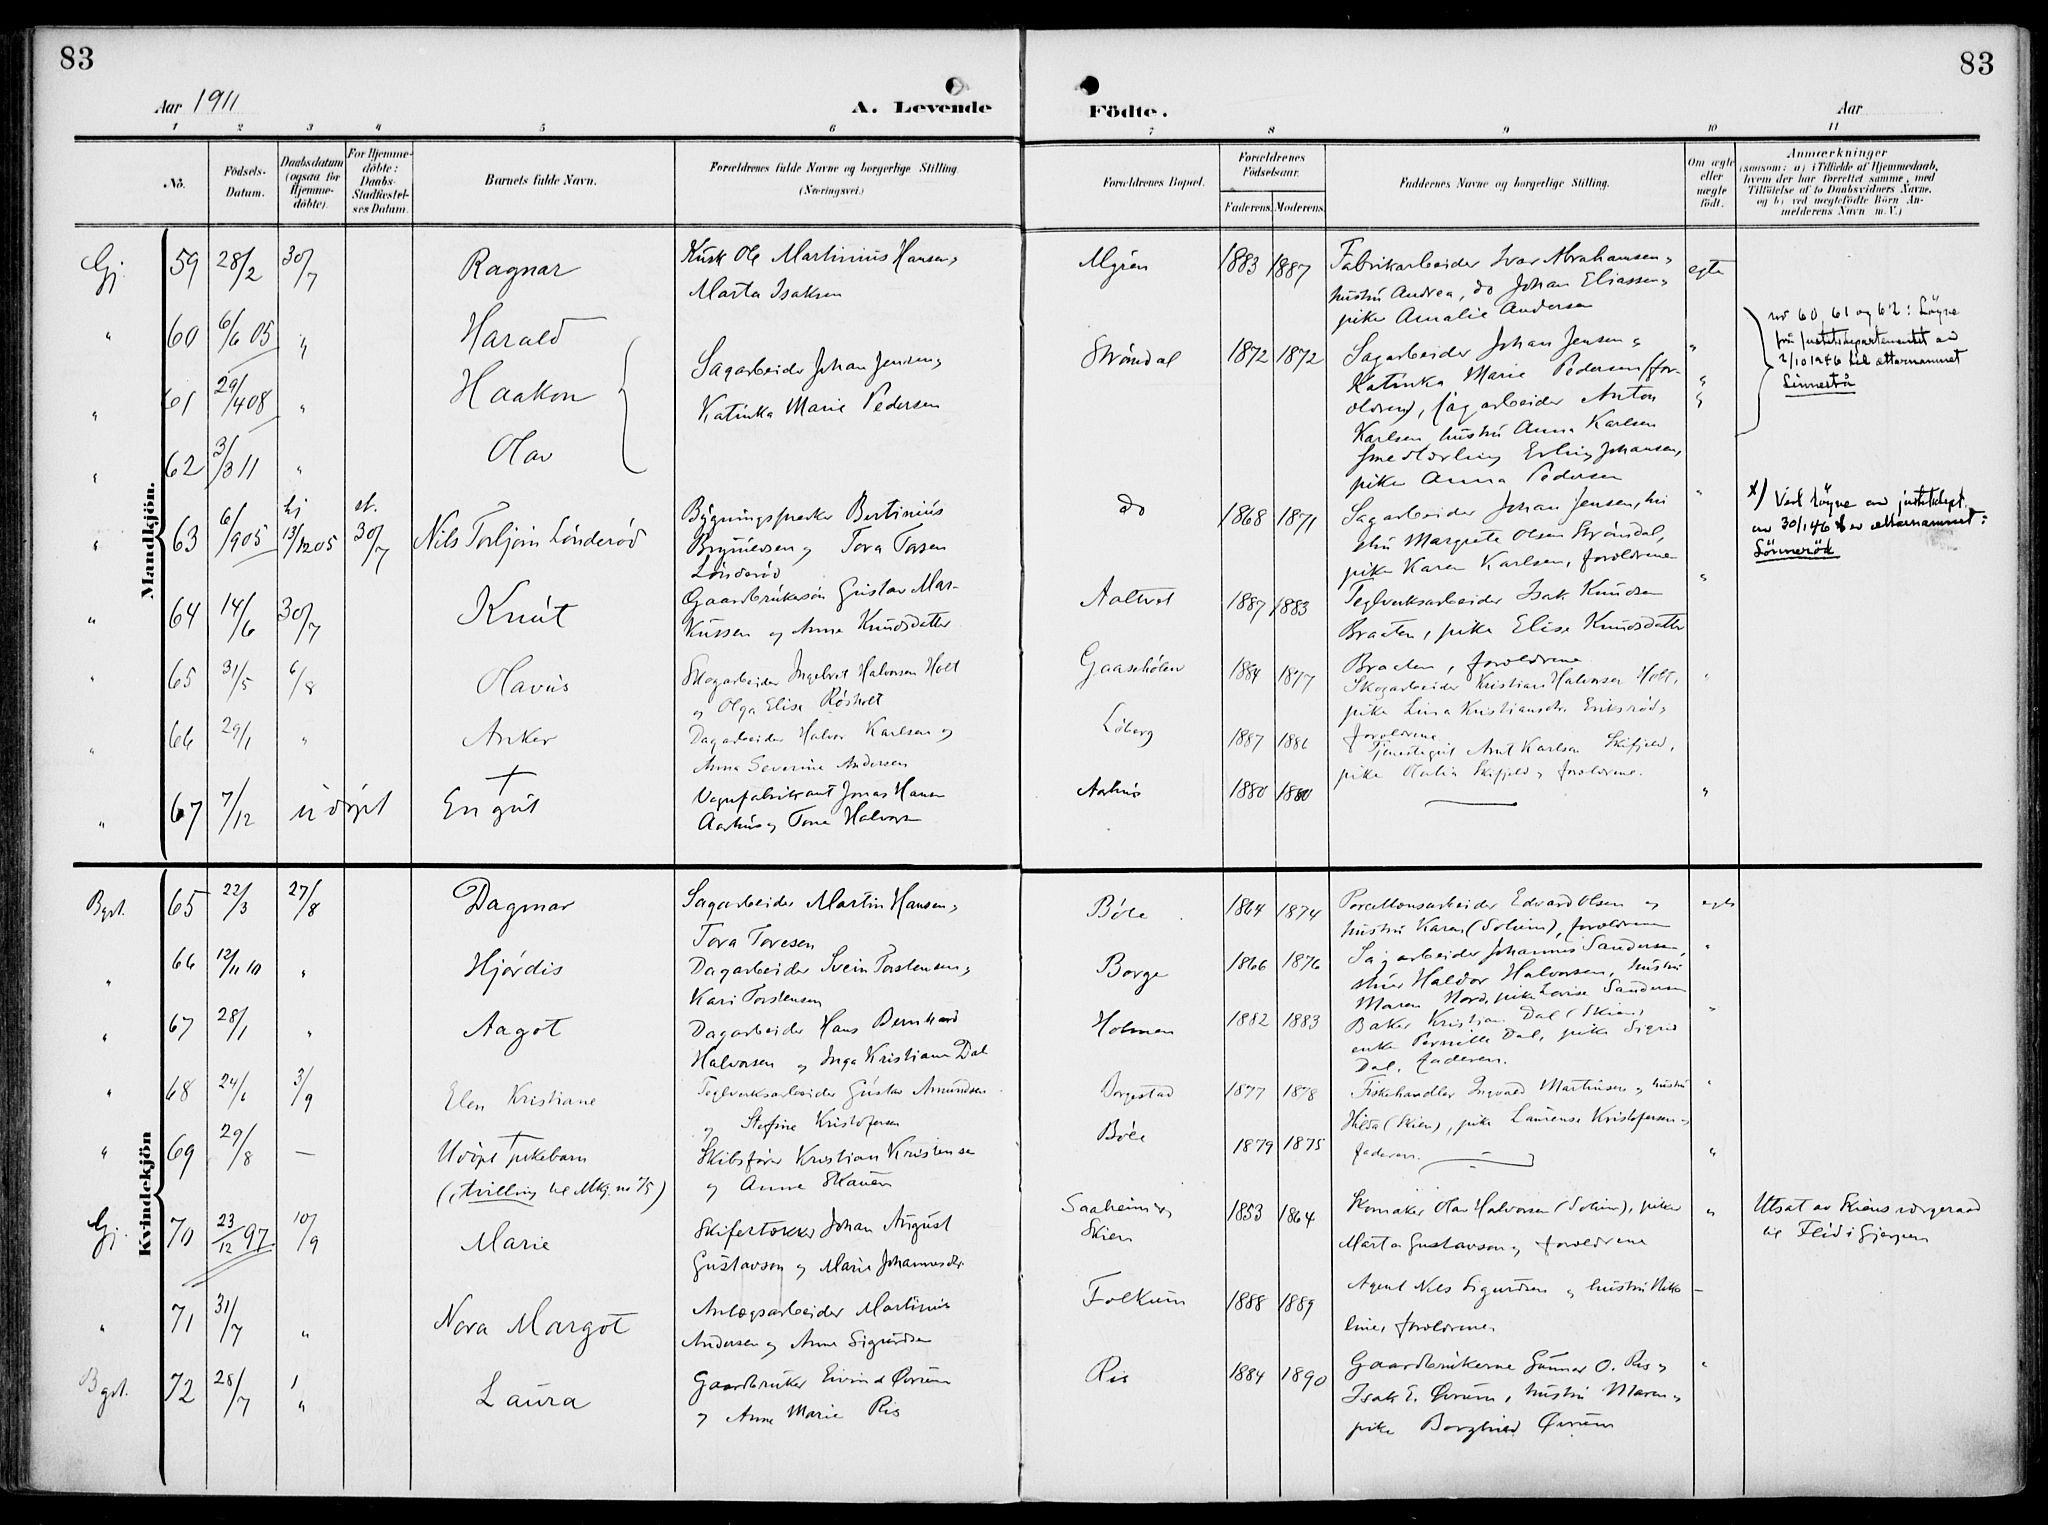 83
83
Aar 1911
A. Levende
Födte.
Aar
1 2 3 4 5 6 7 8 9 10 11
No.
Födsels-Datum.
Daabsdatum (ogsaa for Hjemme-döbte).
For Hjemme-döbte: Daabs-Stadfæstel-ses Datum.
Barnets fulde Navn.
Forældrenes fulde Navne og borgerlige Stilling.
(Næringsvei.)
Forældrenes Bopæl.
Forældrenes Födselsaar.
Faderens. Moderens.
Faddernes Navne og borgerlige Stilling.
Om ægte eller uægte födt.
Anmærkninger
(saasom: a) i Tilfælde af Hjemmedaab,
hvem der har forrettet samme, med
Tilföielse af to Daabsvidners Navne,
og b) ved uægtefödte Börn An-
melderens Navn m. V.)
Mandkjön.
Gj. 59 28/2 30/7 Ragnar
Kusk Ole Martinius Hansen og
Marta Isaksen
Myren 1883 1887
Fabrikarbeider Ivar Abrahamsen og
hustru Andrea, do Johan Eliassen og
pike Amalie Andersen
egte
" 60 6/6 05 " Harald
" 61 29/4 08 " Haakon
" 62 3/3 11 " Olav
Sagarbeider Johan Jensen og
Katinka Marie Pedersen
Strømdal 1872 1872
Sagarbeider Johan Jensen og
Katinka Marie Pedersen (for-
oldrene), sagarbeider Anton
Karlsen, hustru Anna Karlsen
smedlærling Erling Johansen,
pike Anna Pedersen
" " "
nr 60, 61 og 62: Løyve
frå Justitsdepartementet av
2/10 1946 til ættarnamnet
Linnestå
" 63 6/9 05 hj 13/12 05 st. 30/7 Nils Torbjørn Lønderød
Bygningssnekker Bertinius
Brynildsen og Tora Torsen
Lønderød
do 1868 1871
Sagarbeider Johan Jensen, hu
stru Margrete Olsen Strømdal,
pike Karen Karlsen, foroldrene
"
x) Ved løyve av justitsdept.
av 30/1 46 er ættarnamnet:
Sönnerök
" 64 14/6 30/7 Knut
Gaardbrukersøn Gustav Mar-
kussen og Anne Knudsdatter
Aaltvet 1887 1883
Teglverksarbeider Isak Knudsen
Braaten, pike Elise Knudsdatter
Braaten, foroldrene
"
" 65 31/5 6/8 Olavus
Skogarbeider Ingebret Halvorsen Holt
og Olga Elise Røsholt
Gaasehölen 1884 1877
Skogarbeider Kristian Halvorsen Holt,
pike Lina Kristiansdtr. Eriksrød og
foroldrene
"
" 66 29/1 " Anker
Dagarbeider Halvor Karlsen og
Anna Severine Andersen
Löberg 1887 1886
Tjenestegut Arnt Karlsen Skifjeld,
pike Skifjeld og foroldrene.
" 67 7/12 udøpt En gut
Vognfabrikant Jonas Hansen
Aarhus og Tona Halvorsen
Aarhus 1880 1880 "
Kvindekjön
Bgst. 65 22/3 27/8 Dagmar
Sagarbeider Martin Hansen og
Tora Toresen
Böle 1864 1874
Porcellænsarbeider Edvard Olsen og
hustru Karen (Solum), foroldrene
egte
" 66 12/11 10 " Hjørdis
Dagarbeider Svein Torstensen og
Kari Torstensen
Borge 1866 1876
Sagarbeider Johannes Sandersen,
Haldor Halvorsen, hustru
Maren Nord, pike Lovise Sandersen
"
" 67 28/1 " Aagot
Dagarbeider Hans Bernhard
Halvorsen og Inga Kristiane Dal
Holmen 1882 1883
Baker Kristian Dal (Skien)
enke Pernille Dal, pike Sigrid
Dal, faderen.
"
" 68 24/6 3/9 Elen Kristiane
Teglverksarbeider Gustav Amundsen
og Stefine Kristofersen
Borgestad 1877 1878
Fiskehandler Ingvald Martinsen og hustru
Hilda (Skien), pike Laurense Kristofersen og
faderen.
"
" 69 29/8 — Udöpt pikebarn
(tvilling til Mkj. nr 75)
Skibsfører Kristian Kristensen
og Anne Skauen
Böle 1879 1875 "
Gj. 70 23/12 97 10/9 Marie
Skifertækker Johan August
Gustavson og Marie Johannesdtr.
Saaheim og
Skien
1853 1864
Skomaker Olav Halvorsen (Solum), pike
Marta Gustavson og foroldrene
"
Utsat av Skiens vergeraad
til Flid i Gjerpen
" 71 31/7 " Nora Margot
Anlægsarbeider Martinius
Andersen og Anne Sigurdsen
Folkum 1888 1889
Agent Nils Sigurdsen og hustru Niko-
line, foroldrene
Bgst. 72 28/7 1 " Laura
Gaardbruker Eivind Övrum
og Anne Marie Ris
Ris 1884 1890
Gaardbrukerne Gunnar O. Ris og
Isak E. Övrum, hustru Maren og
pike Borghild Övrum
"